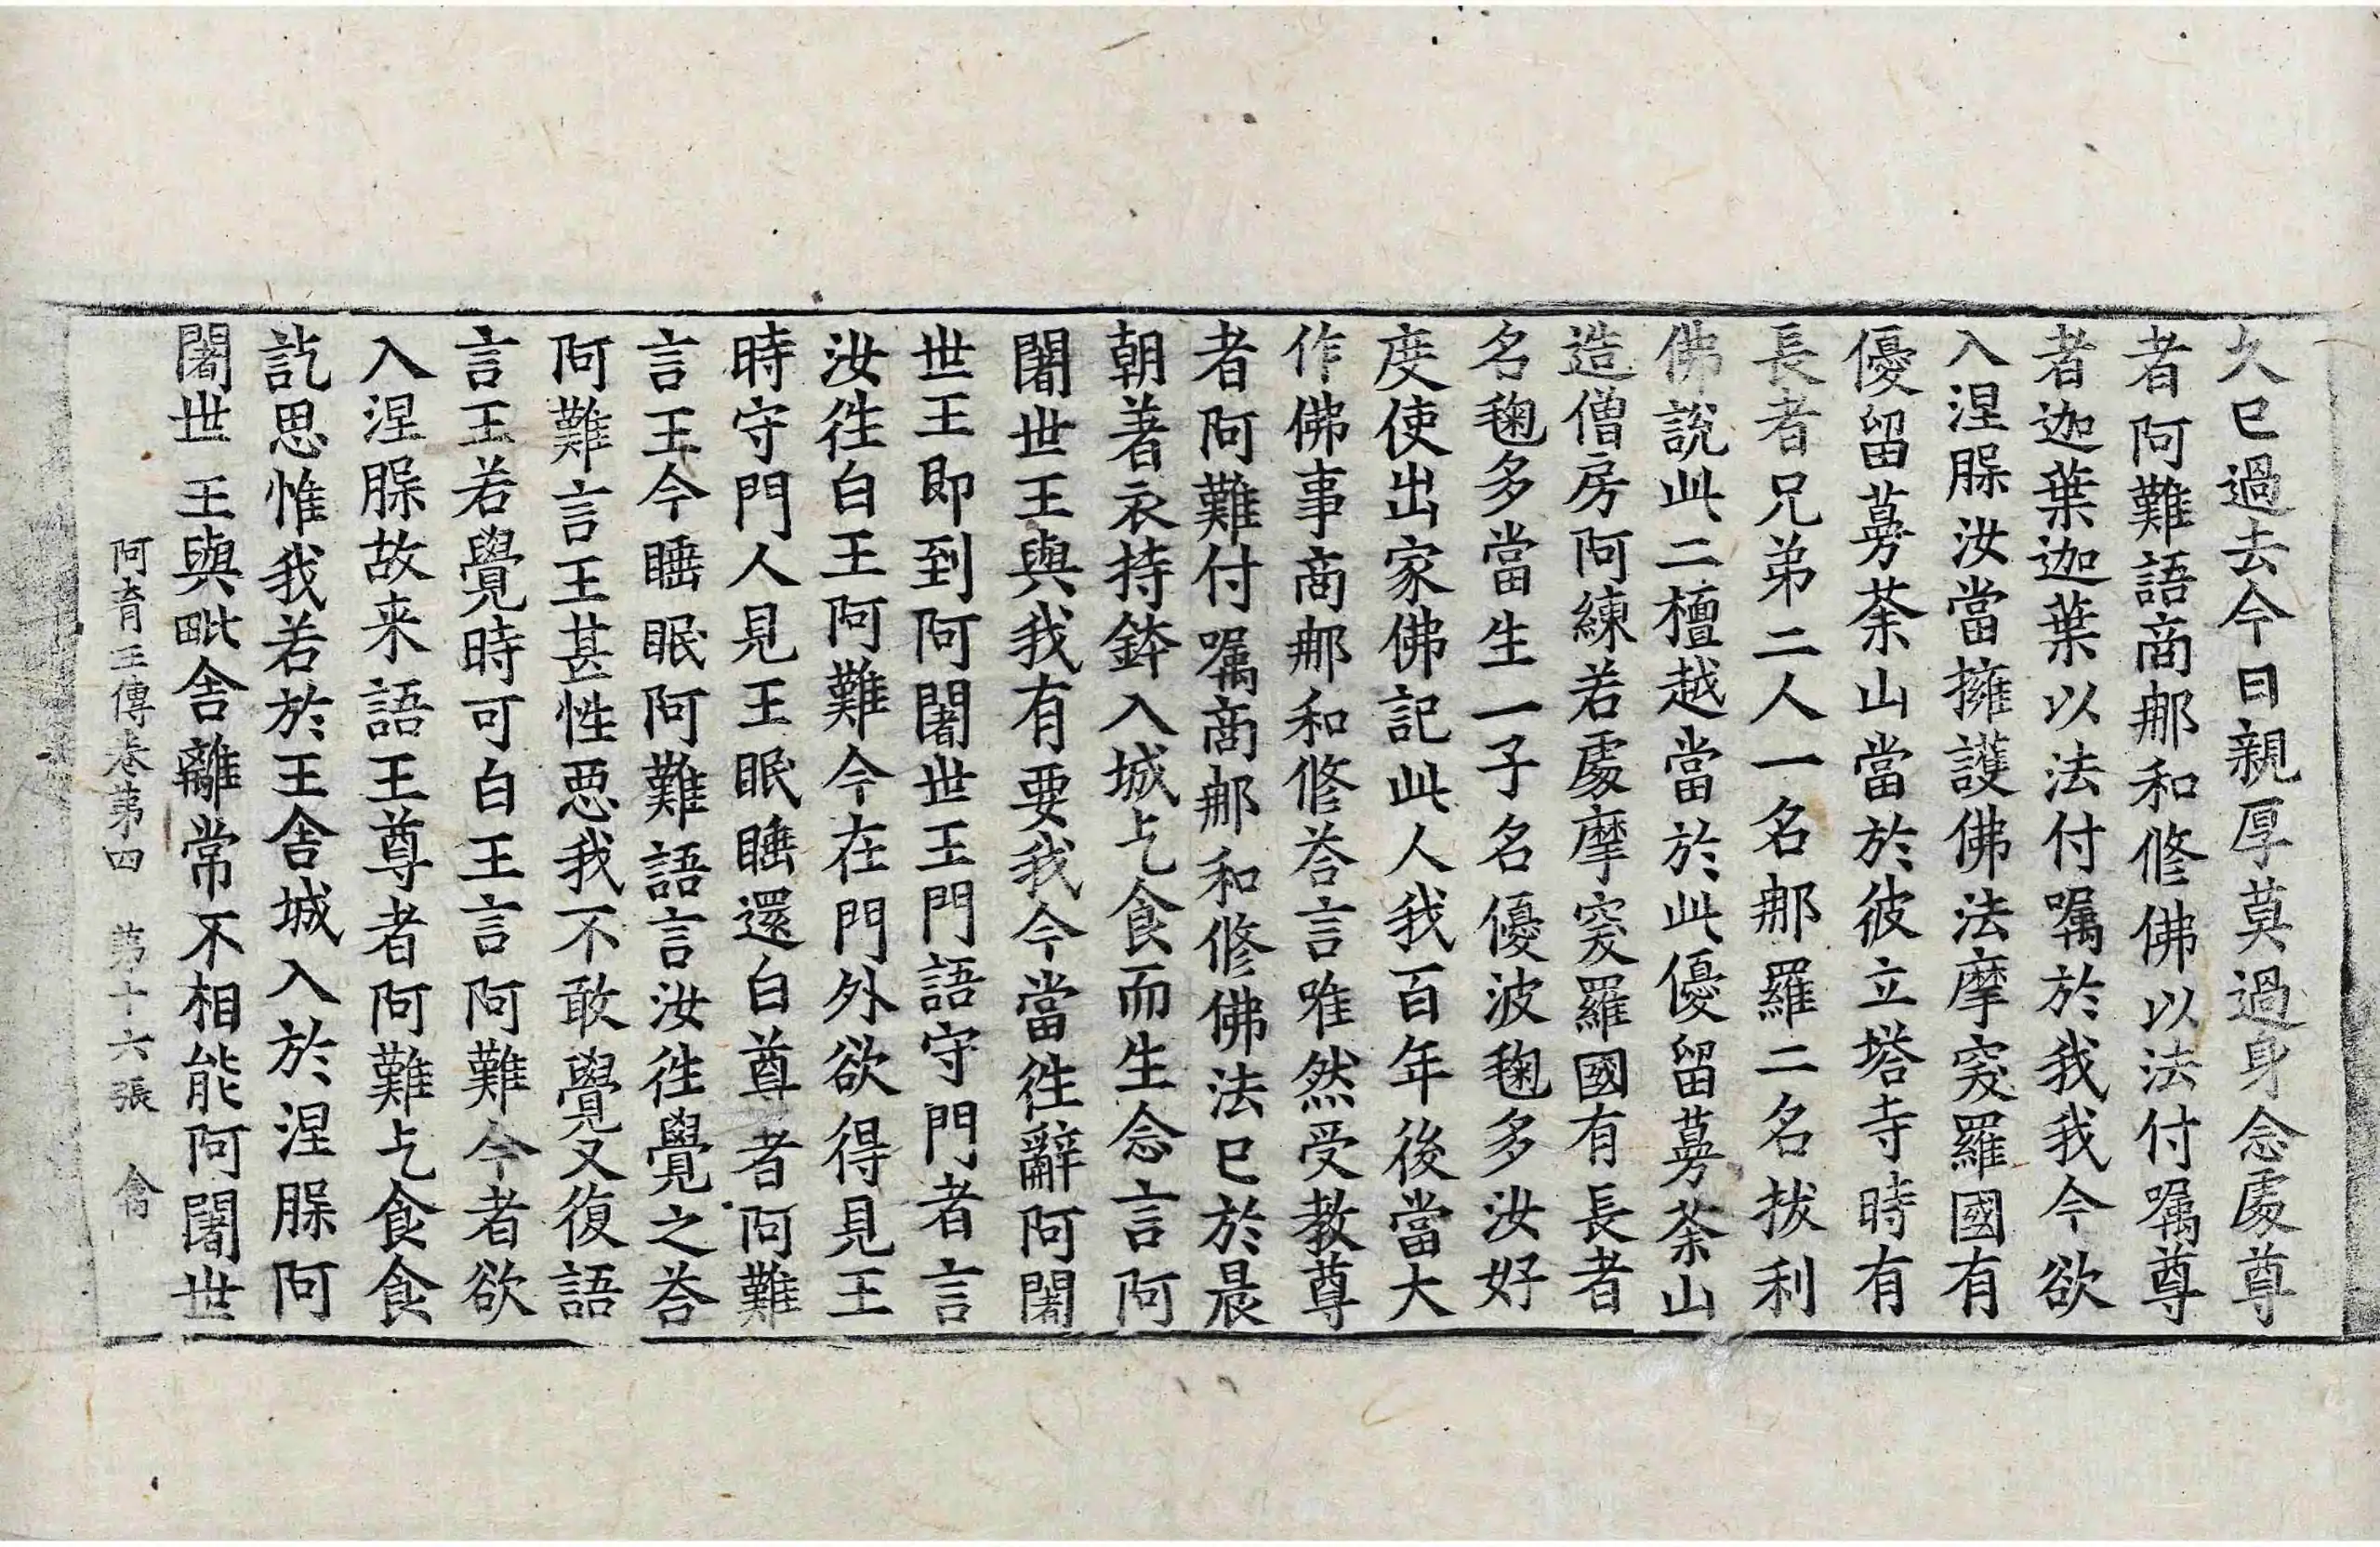 久已過去今日親厚莫過身念處尊
者阿難語商那和修佛以法付囑尊
者迦葉迦葉以法付囑於我我今欲
入涅脲汝當擁護佛法摩突羅國有
優留蔓荼山當於彼立塔寺時有
長者兄弟二人一名那羅二名拔利
佛說此二檀越當於此優留蔓荼山
造僧房阿練若處摩突羅國有長者
名毱多當生一子名優波毱多汝好
度使出家佛記此人我百年後當大
作佛事商那和修荅言唯然受教尊
者阿難付囑商那和修佛法已於晨
朝著衣持鉢入城乞食而生念言阿
闍世王與我有要我今當往辭阿闍
世王即到阿闍世王門語守門者言
汝往白王阿難今在門外欲得見王
時守門人見王眠睡還白尊者阿難
言王今睡眠阿難語言汝往覺之荅
阿難言王甚性惡我不敢覺又復語
言王若覺時可白王言阿難今者欲
入涅脲故来語王尊者阿難乞食食
訖思惟我若於王舍城入於涅脲阿
闍世王與毗舍離常不相能阿闍世
阿育王傳卷第四 第十六張 禽